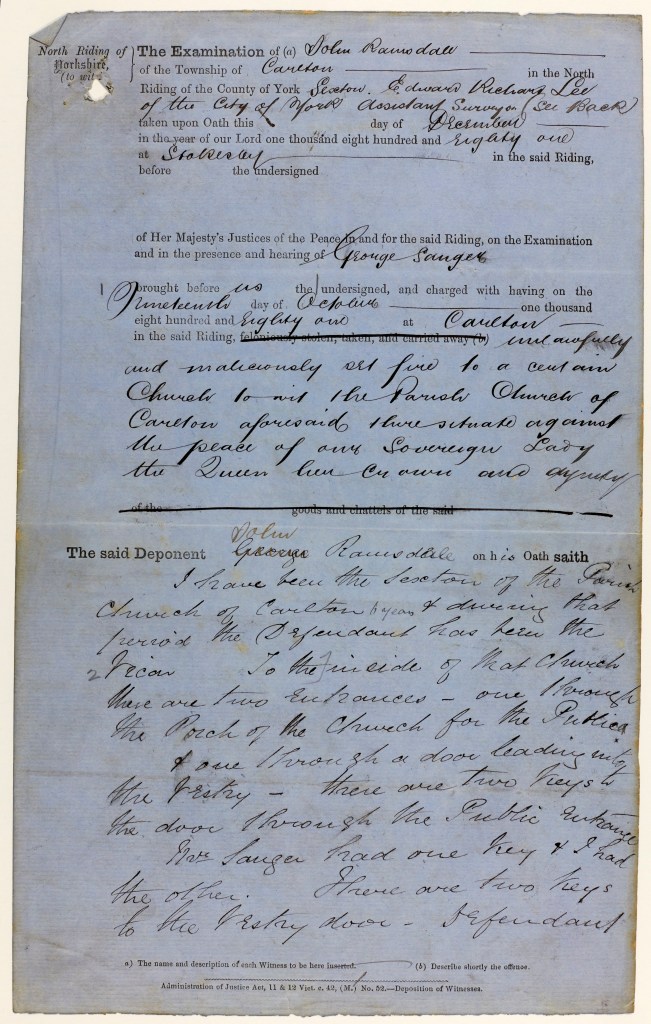 North Riding of
Yorkshire,
(to wit)
The Examination of (a) John Ramsdale
of the Township of Carlton in the North
Riding of the County of York Sexton. Edward Richard Lee
of the City of York Assistant Surveyor (See Back
taken upon Oath this day of December
in the year of our Lord one thousand eight hundred and Eighty one
at Stokesley in the said Riding,
before the undersigned
of Her Majesty's Justices of the Peace in and for the said Riding, on the Examination
and in the presence and hearing of George Sanger
1 brought before us the undersigned, and charged with having on the
Nineteenth day of October one thousand
eight hundred and Eighty one at Carlton
in the said Riding, feloniously stolen, taken, and carried away (b) unlawfully
and maliciously set fire to a certain
Church to wit the Parish Church of
Carlton aforesaid there situate against
the peace of our Sovereign Lady
the Queen her Crown and dignity
of the goods and chattels of the said
John
The said Deponent George Ramsdale on his Oath saith
I have been the Sexton of the Parish
Church of Carlton years & during that
period the Defendant has been the
2 Vicar To the inside of that Church
there are two Entrances – one through
the Porch of the Church for the Public
& one through a door leading into
the Vestry – there are two keys to
the door through the Public Entrance
Mr Sanger had one key & I had
the other. There are two keys
to the Vestry door – Defendant
a) The name and description of each Witness to be here inserted. (b) Describe shortly the offence.
Administration of Justice Act, 11 & 12 Vict. c. 42, (M.) No. 52.—Deposition of Witnesses.